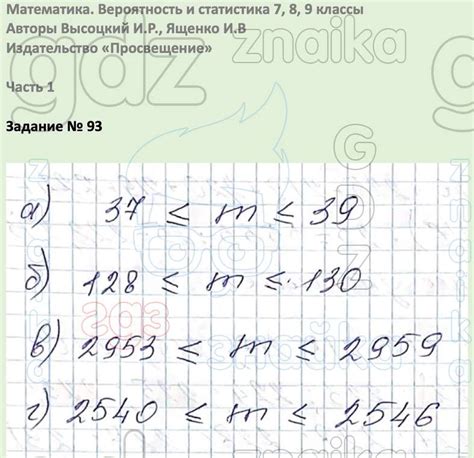 Математика. Вероятность и статистика 7, 8, 9 классы
Авторы Высоцкий И.Р., Ященко И.В
Издательство «Просвещение»
Часть 1
Задание № 93
а) 37 ≤ m ≤ 39
б) 128 ≤ m ≤ 130
в) 2953 ≤ m ≤ 2959
г) 2540 ≤ m ≤ 2546